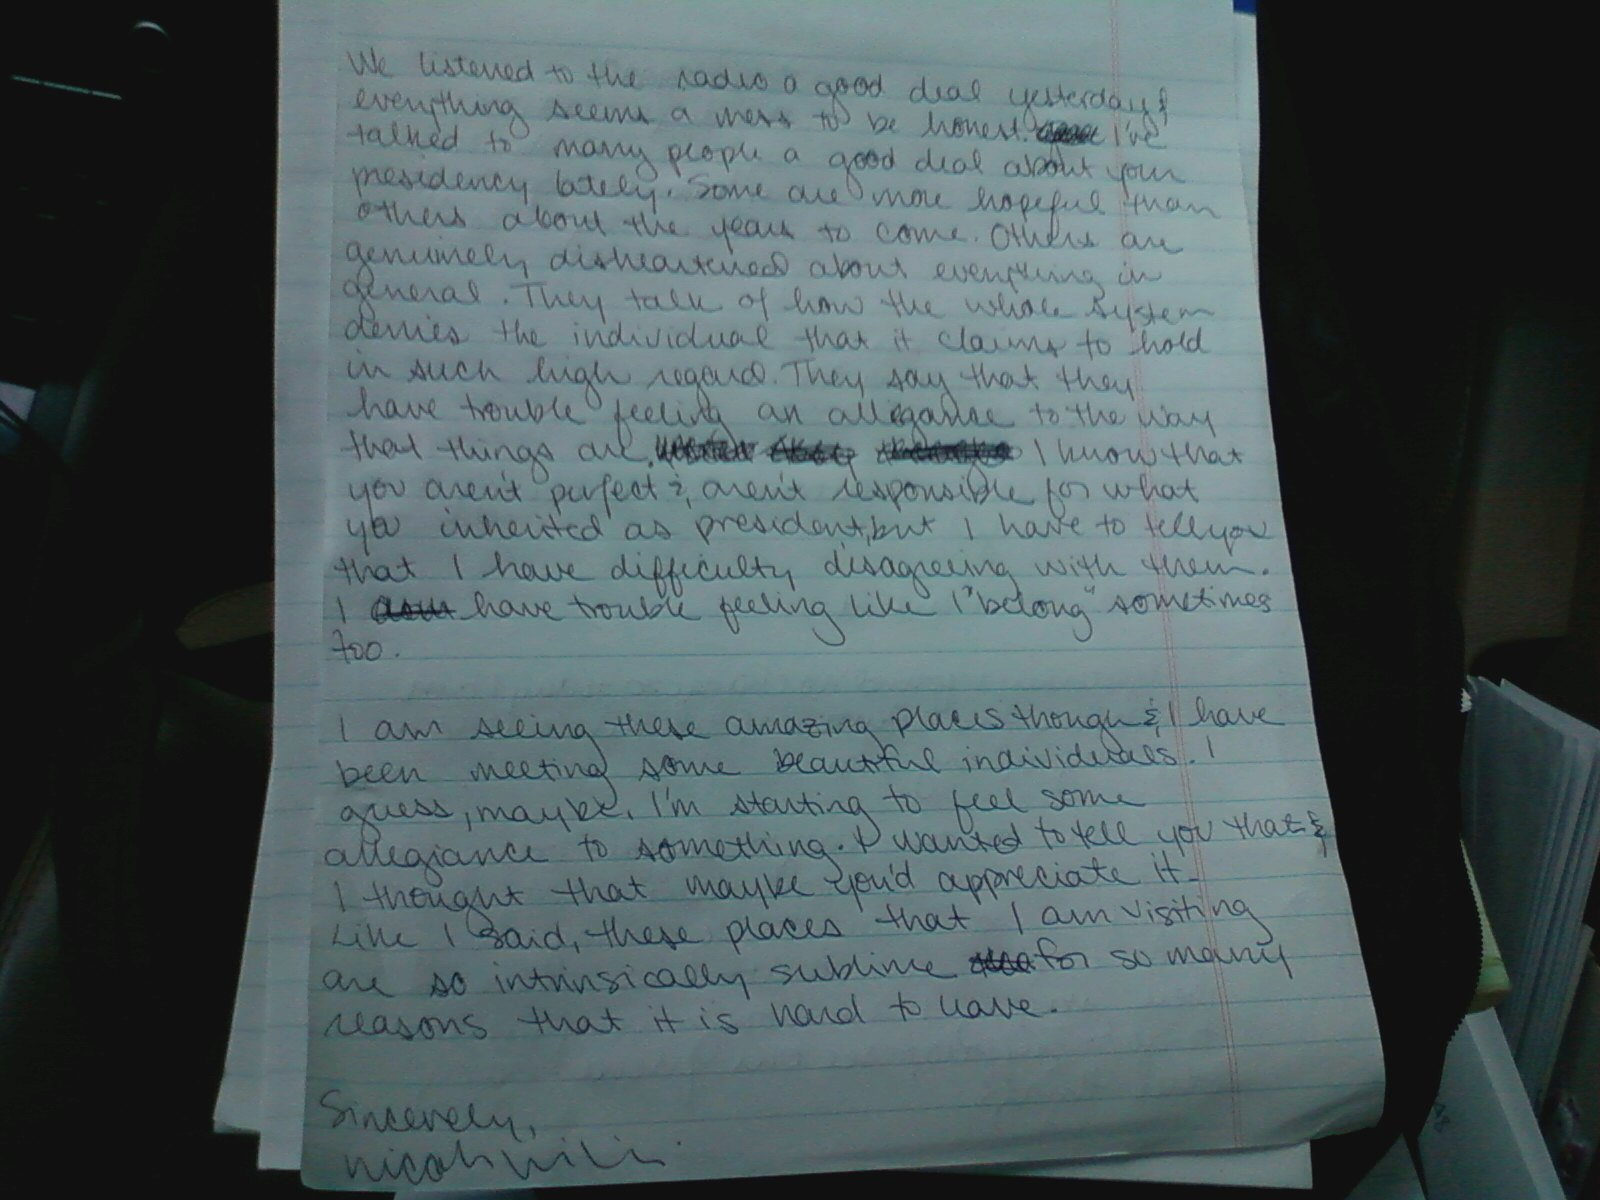 We listened to the radio a good deal yesterday &
everything seems a mess to be honest. I've
talked to many people a good deal about your
presidency lately. Some are more hopeful than
others about the years to come. Others are
genuinely disheartened about everything in
general. They talk of how the whole system
denies the individual that it claims to hold
in such high regard. They say that they
have trouble feeling an allegance to the way
that things are. I know that
you aren't perfect & aren't responsible for what
you inherited as president, but I have to tell you
that I have difficulty disagreeing with them.
I have trouble feeling like I "belong" sometimes
too.
I am seeing these amazing places though & I have
been meeting some beautiful individuals. I
guess, maybe, I'm starting to feel some
allegiance to something. I wanted to tell you that &
I thought that maybe you'd appreciate it-
Like I said, these places that I am visiting
are so intrinsically sublime for so many
reasons that it is hard to leave.
Sincerely,